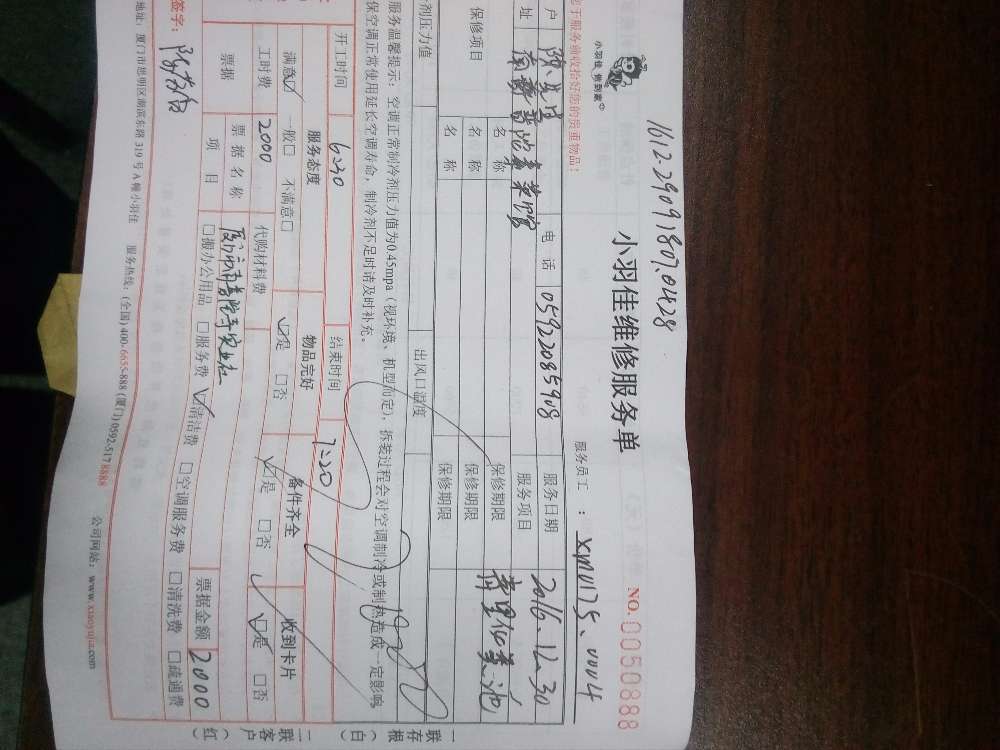 161229091807.0428
小羽佳 售到家
小羽佳维修服务单
NO. 0050888
服务员工 : xm0175、0004
您于服务前收拾好您的贵重物品:
户
电 话 05922085908
服务日期 2016.12.30
址 南普陀素菜馆
服务项目 清理化粪池
保修项目
名 称 保修期限
名 称 保修期限
名 称 保修期限
剂压力值 出风口温度
服务温馨提示:空调正常制冷剂压力值为0.45mpa(视环境、机型而定),拆装过程会对空调制冷或制热造成一定影响
保空调正常使用延长空调寿命,制冷剂不足时请及时补充。
开工时间 6:30 结束时间 7:20
服务态度 物品完好 备件齐全 收到卡片
满意☑ 一般□ 不满意□ ☑是 □否 ☑是 □否 ☑是 □否
工时费 2000 代购材料费
票据 票据名称 厦门市南普陀寺实业社 票据金额 2000
项 目 □搬办公用品 □服务费 ☑清洁费 □空调服务费 □清洗费 □疏通费
签字:
地址:厦门市思明区湖滨东路 319 号 A 幢小羽佳 服务热线:(全国) 400-6655-888 (厦门) 0592-5178888 公司网站:www.xiaoyujia.com
一联存根(白)
二联客户(红)